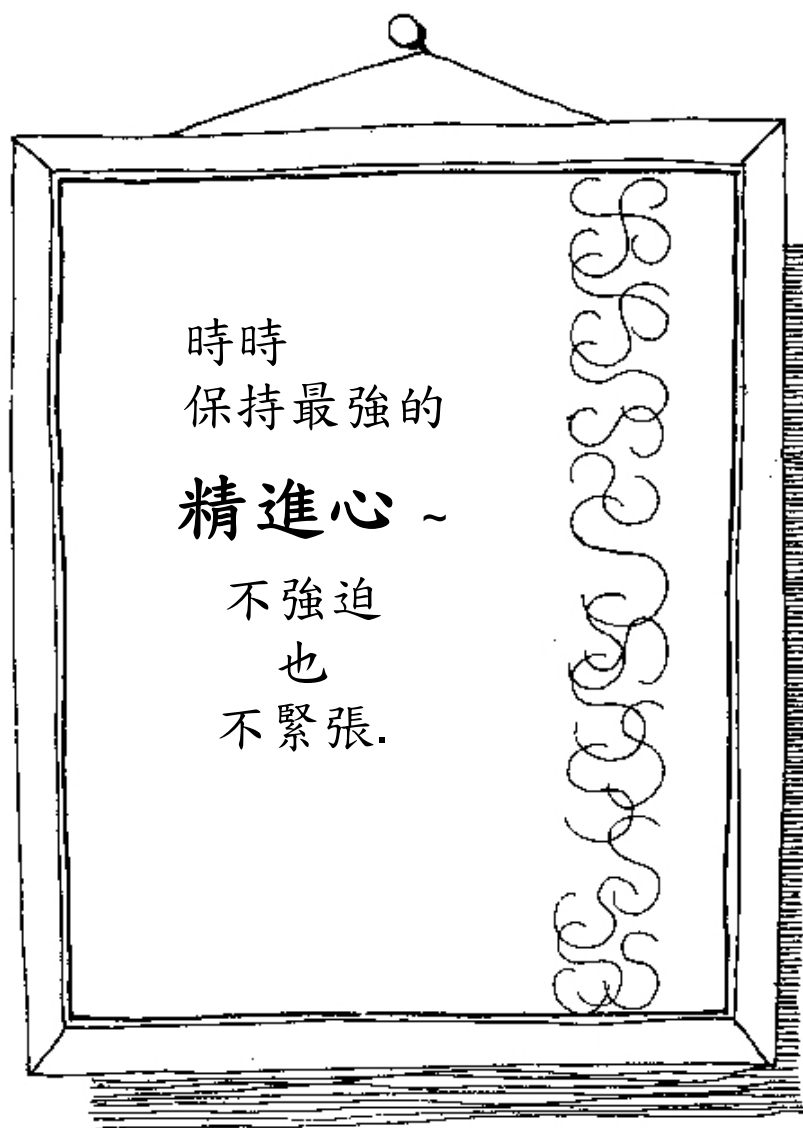 時時
保持最強的
精進心 ~
不強迫
也
不緊張.